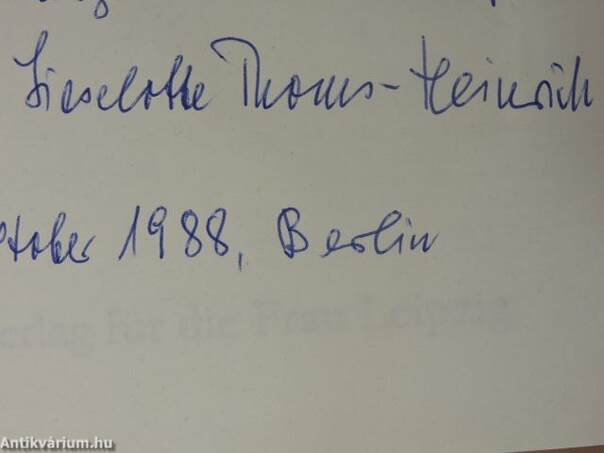 Lieselotte Thoms-Heinrich
ktober 1988, Berlin
erlag für die Frau Leipzig
Antikvárium.hu